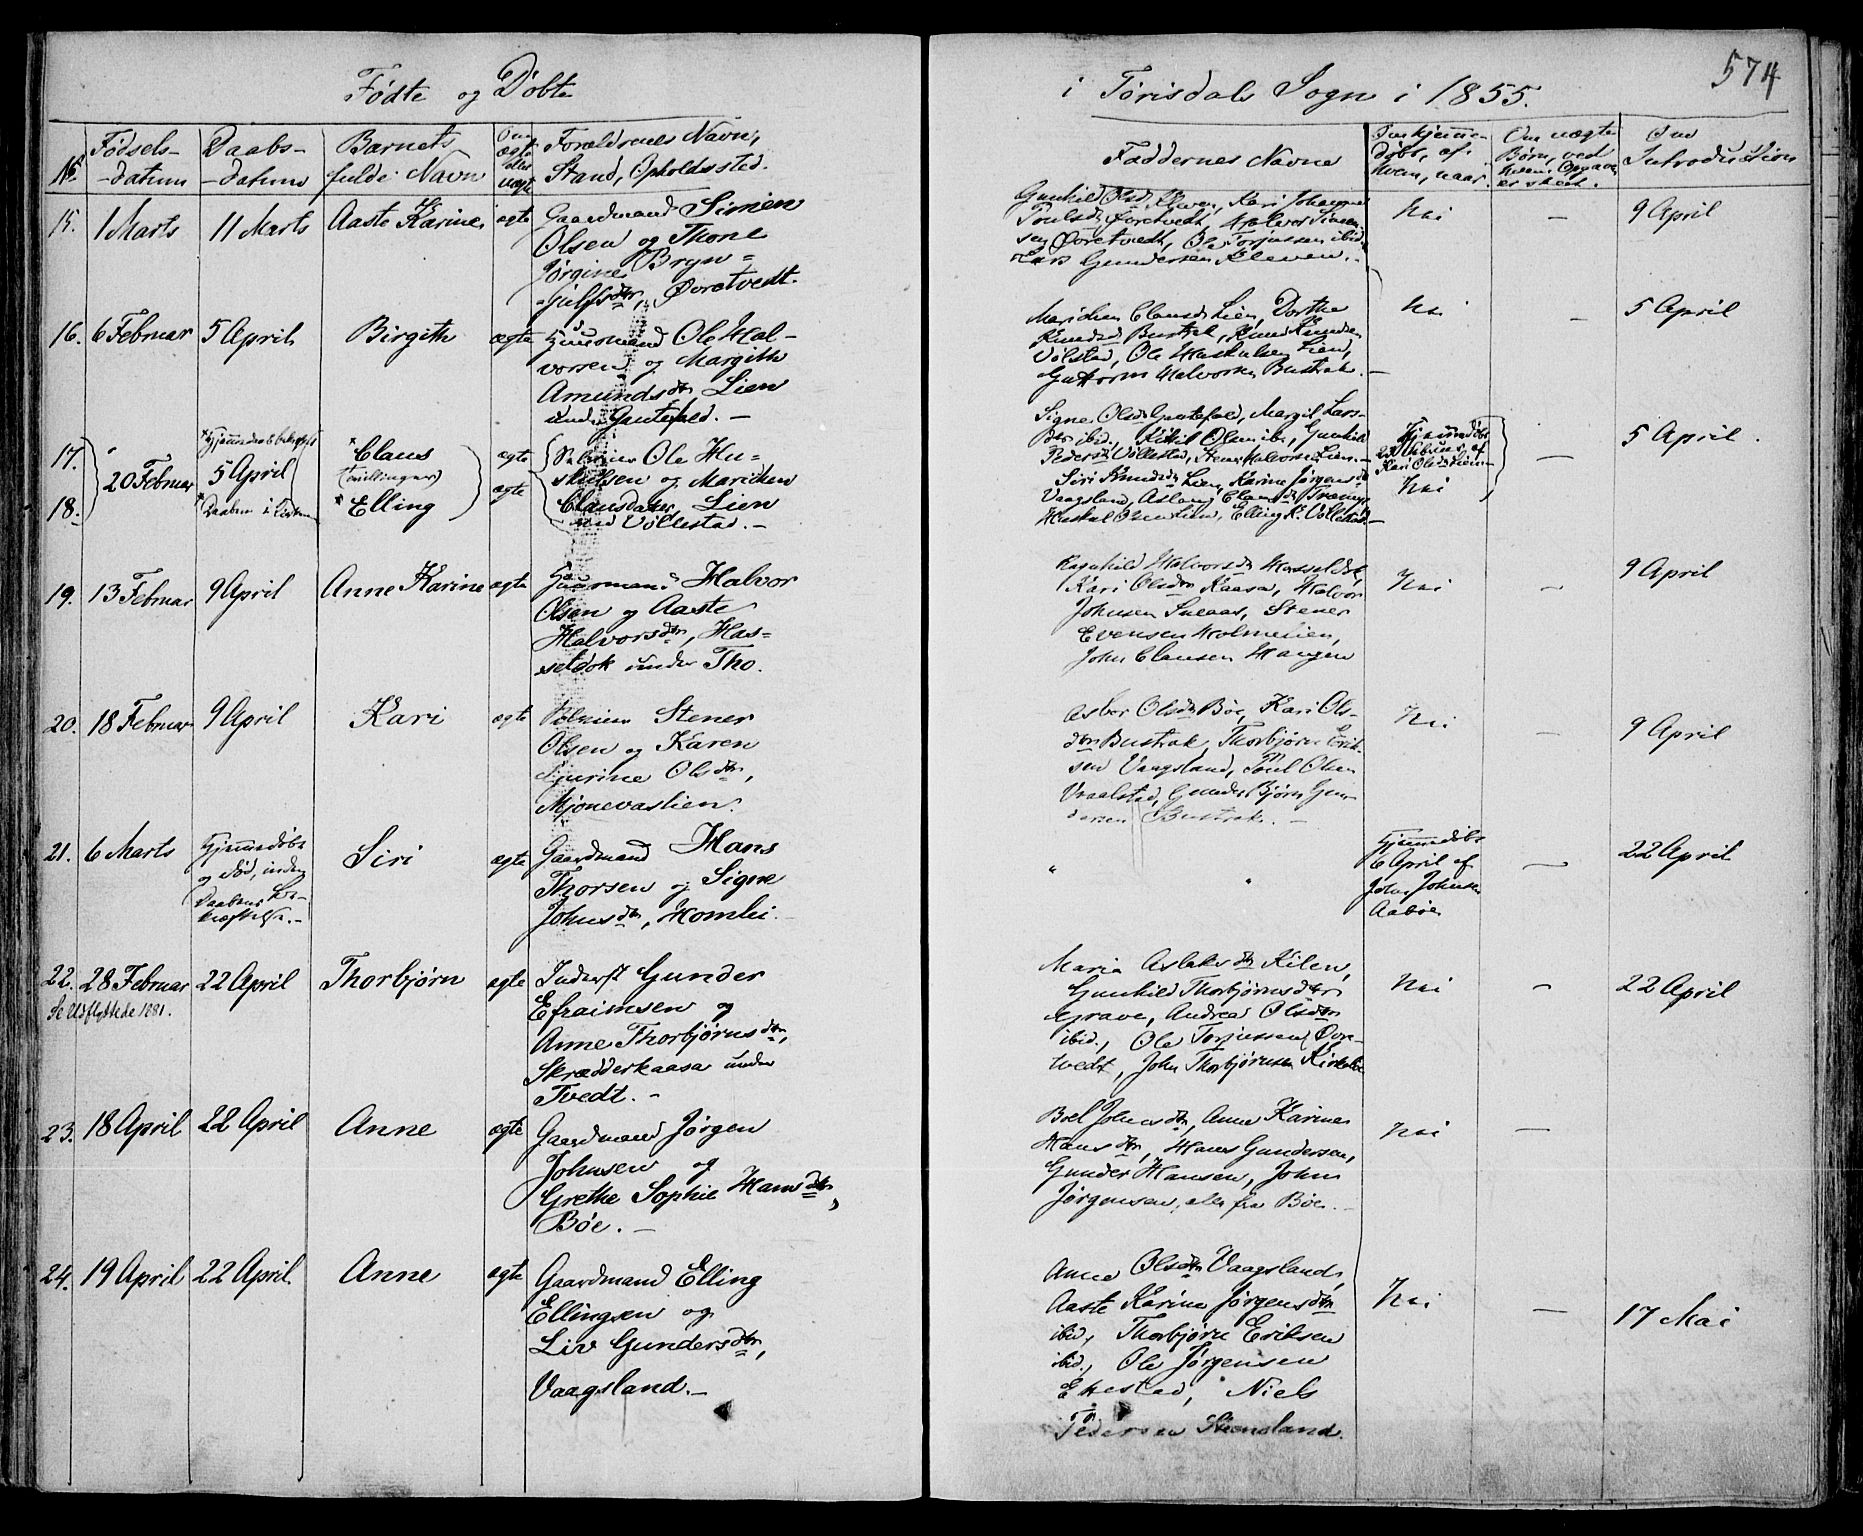 574
Fødte og Døbte
i Tørisdals Sogn i 1855.
№
Fødsels-
-datum
Daabs-
-datum
Barnets
fulde Navn
Om
ægte
eller
uægte
Forældrenes Navn,
Stand, Opholdssted.
Faddernes Navne
døbt, af
hvem, naar.
Om uægte
Børn, ved
hvem Opgaven
er skeet.
Introduction
15.
1 Marts
11 Marts
Aaste Karine
ægte
Gaardmand Simen
Olsen og Thone
Jørgine Bryn=
-julfsdtr, Øvretvedt.
Gunhild Olsd. Kleven, Kari Johanne
Øvretvedt, Halvor Simen-
sen Øvretvedt, Ole Torjussen ibid.,
Lars Gundersen Kleven.
Nei
—
9 April
16.
6 Februar
5 April
Birgith
ægte
Huusmand Ole Hal-
vorsen og Margith
Amundsdtr, Lien
under Gautefald. —
Marichen Clausd. Lien, Dorthe
Knudsd. Bustrak, Knud Knudsen
Vølstad, Ole Haskulsen Lien,
Guttorm Halvorsen Bustrak. —
Nei
—
5 April
17.
18.
20 Februar
5 April
Claus
(tvillinger)
Elling
ægte
ægte
Ole Hu=
skulsen og Marichen
Clausdatter, Lien
Vøllestad. —
Signe Olsd. Gautefald, Margit Lars-
dtr ibid., Kittil Olsen ib., Gunhild
Pedersd. Vøllestad, Halvorsen Lien. —
Siri Knudsd. Lien, Karine Jørgensd.
Vaagsland, Aslaug Clausd.
Haskul Olsen Lien, Elling K. Vøllestad. —
Hjemmedøbt
af
Kari Olsd. Lien —
Nei
—
5 April.
19.
13 Februar
9 April
Anne Karine
ægte
Huusmand Halvor
Olsen og Aaste
Halvorsdtr, Has=
seldok under Tho.
Ragnhild Halvorsd. Hasseldok,
Kari Olsdtr Kaasa, Halvor
Johnsen Sneaas, Stener
Evensen Holmelien,
John Clausen Haugen
Nei
—
9 April
20.
18 Februar
9 April
Kari
ægte
Stener
Olsen og Karen
Gurine Olsdtr,
Mjonevaslien.
Asber Olsd. Bøe, Kari Ols-
dtr Bustrak, Thorbjørn Erik-
sen Vaagsland, Poul Olsen
Vraalstad, Gunder Bjørn Gun-
dersen Bustrak. —
Nei
—
9 April
21.
6 Marts
Hjemmedøbt
og død, inden
Daabens Be-
kræftelse. —
Siri
ægte
Gaardmand Hans
Thorsen og Signe
Johnsdtr, Homlei.
"
"
Hjemmedøbt
6 April af
John Johnsen
Aabøe
—
22 April
22.
Se Udflyttede 1881.
28 Februar
22 April
Thorbjørn
ægte
Inderst Gunder
Efraimsen og
Anne Thorbjørnsdtr,
Skrædderkaasa under
Tvedt. —
Maria Aslaksdtr Kilen,
Gunhild Thorbjørnsdtr
Grave, Andrea Olsdtr
ibid., Ole Torjussen Øvre-
tvedt, John Thorbjørnsen Kirkebøe
Nei
—
22 April
23.
18 April
22 April
Anne
ægte
Gaardmand Jørgen
Johnsen og
Grethe Sophie Hansdtr,
Bøe. —
Boel Johnsdtr, Anne Karine
Hansdtr, Hans Gundersen,
Gunder Hansen, John
Jørgensen, alle fra Bøe. —
Nei
—
24.
19 April
22 April
Anne
ægte
Gaardmand Elling
Ellingsen og
Liv Gundersdtr,
Vaagsland. —
Anne Olsdtr Vaagsland,
Aaste Karine Jørgensdtr
ibid, Thorbjørn Eriksen
ibid., Ole Jørgensen
Ekestad, Niels
Pedersen Steensland.
Nei
—
17 Mai